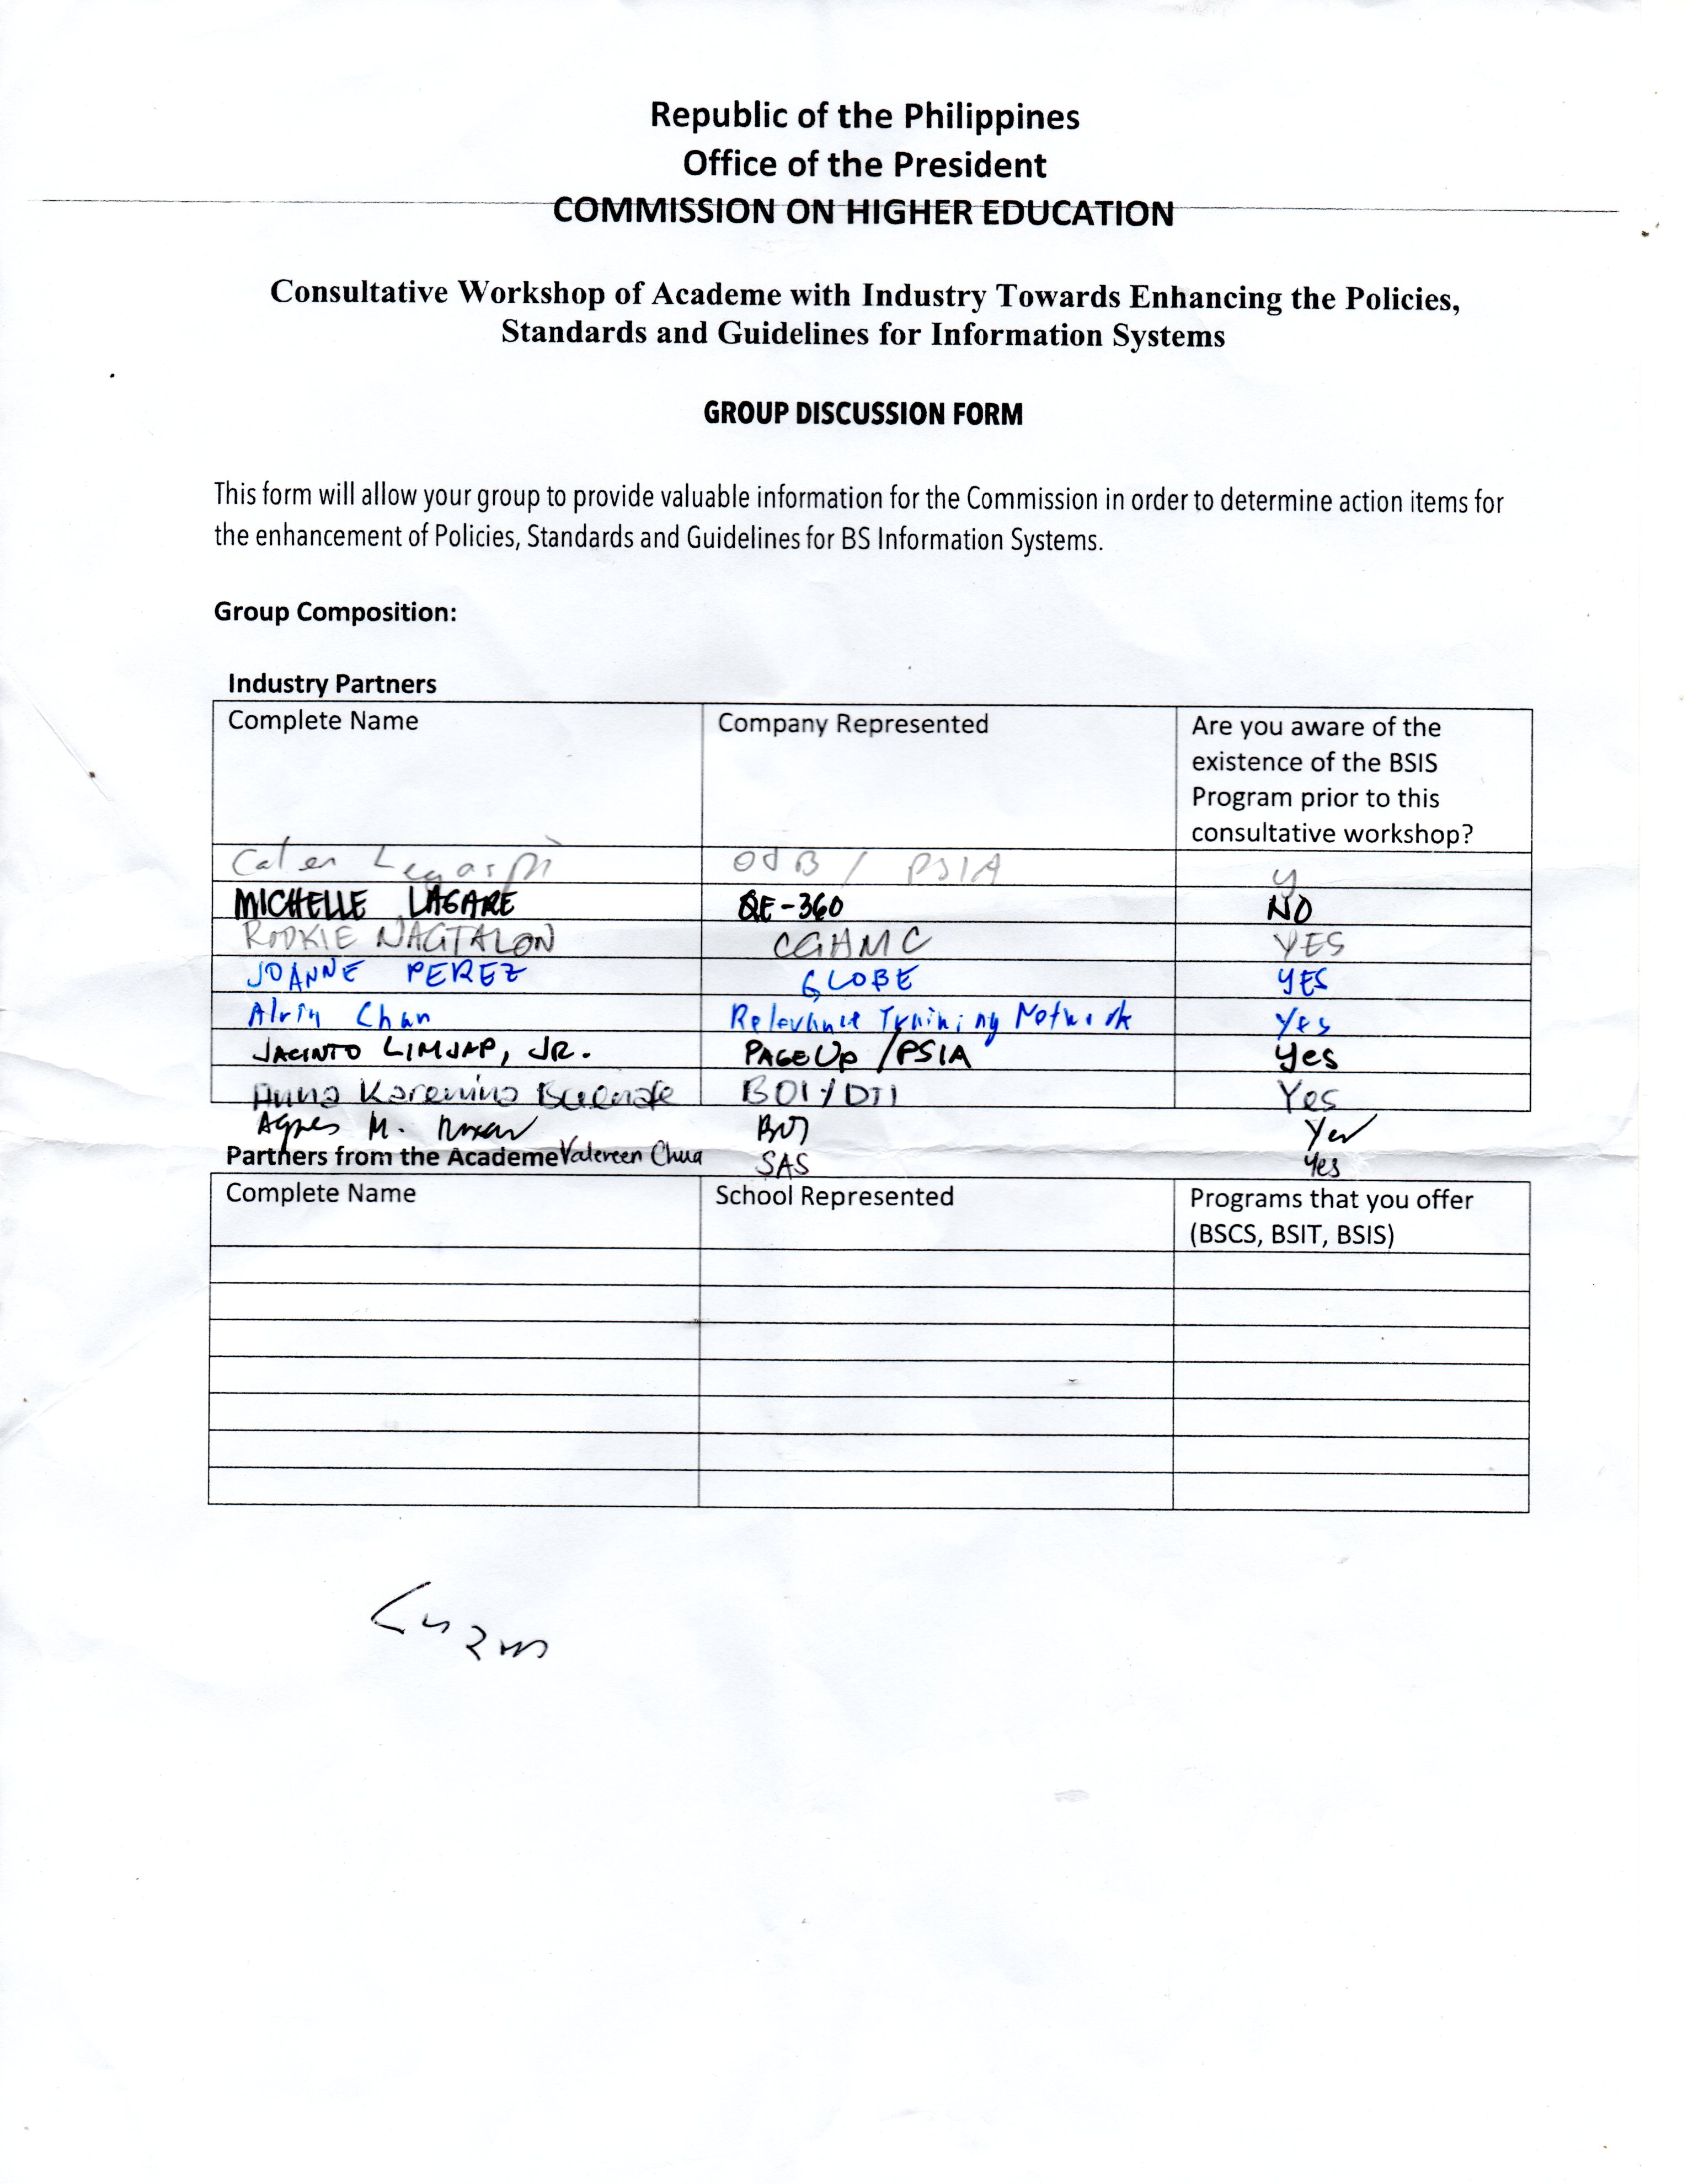 Republic of the Philippines
Office of the President
COMMISSION ON HIGHER EDUCATION
Consultative Workshop of Academe with Industry Towards Enhancing the Policies,
Standards and Guidelines for Information Systems
GROUP DISCUSSION FORM
This form will allow your group to provide valuable information for the Commission in order to determine action items for
the enhancement of Policies, Standards and Guidelines for BS Information Systems.
Group Composition:
Industry Partners
Complete Name Company Represented Are you aware of the
existence of the BSIS
Program prior to this
consultative workshop?
Calen Legaspi / PSIA y
MICHELLE LAGARE QE-360 NO
ROOKIE NAGTALON CGHMC YES
JOANNE PEREZ GLOBE YES
Alvin Chan Relevance Training Network Yes
JACINTO LIMJAP, JR. PAGEUP /PSIA yes
Anna Karenina BOI/DTI Yes
Agnes M. Yes
Partners from the Academe Valereen Chua SAS yes
Complete Name School Represented Programs that you offer
(BSCS, BSIT, BSIS)